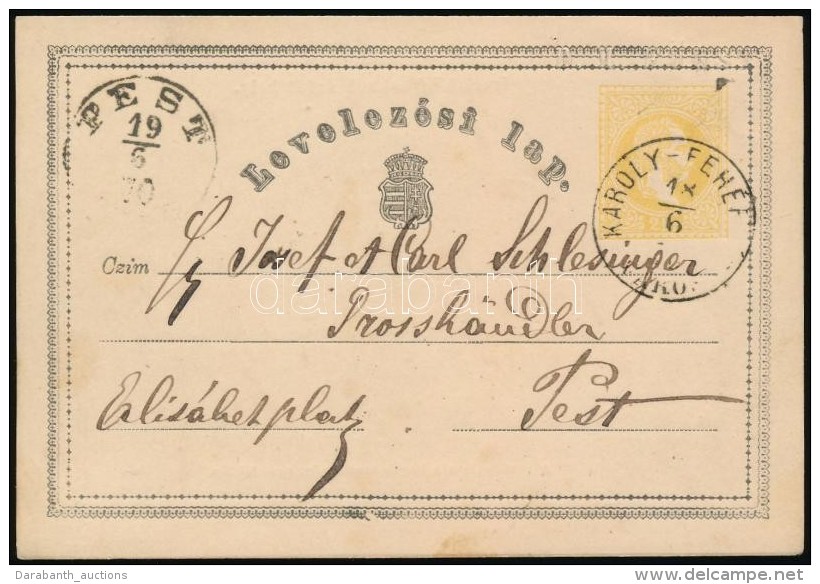 PEST
19
6
70
Levelezési lap.
KAROLY-FEHÉR
18
6
Czim
Josef & Carl Schlesinger
Grosshändler
Elisabetplatz
Pest
darabanth
Darabanth_auctions
www.delcampe.net